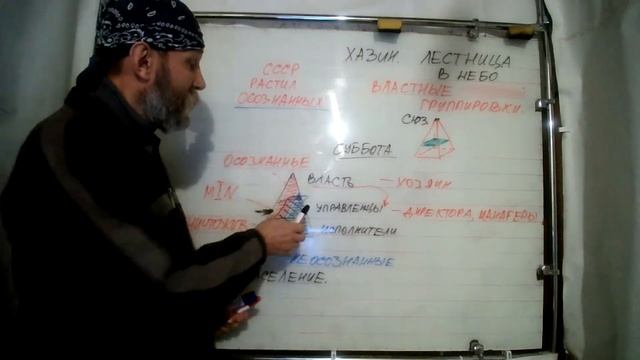 ХАЗИН. ЛЕСТНИЦА
В НЕБО
СССР
РАСТИЛ
ОСОЗНАННЫХ
ВЛАСТНЫЕ
ГРУППИРОВКИ.
СЮЗ
СУББОТА
ОСОЗНАННЫЕ
ВЛАСТЬ — ХОЗЯИН
MIN
УПРАВЛЕНЦЫ — ДИРЕКТОРА, МАНАГЕРЫ
ИСПОЛНИТЕЛИ
НЕОСОЗНАННЫЕ
СЕЛЕНИЕ.